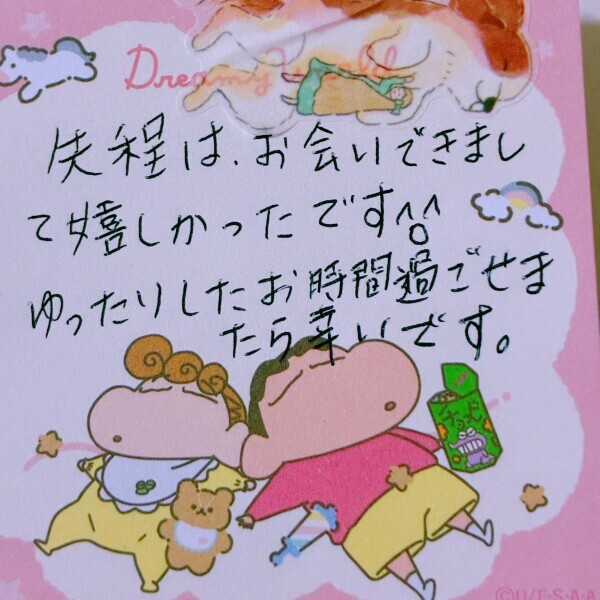 Dreamy World
失程は、お会いできまし
て嬉しかったです^^
ゆったりしたお時間過ごせま
たら幸いです。
チョコビ
©U/F・S・A・A